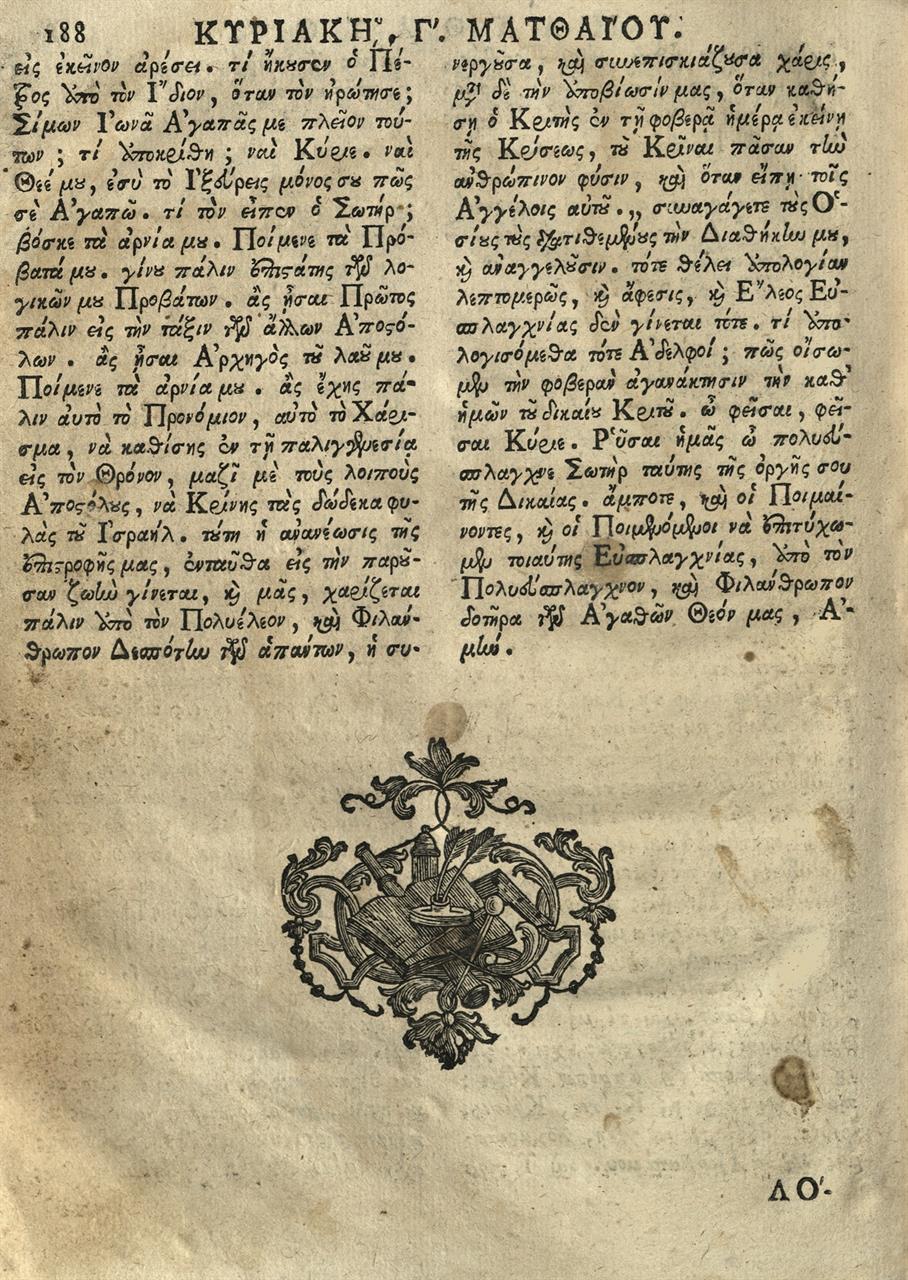 188 ΚΥΡΙΑΚΗ͂, Γ'. ΜΑΤΘΑΙ'ΟΥ.
εἰς ἐκεῖνον ἀρέσει. τί ἤκουσεν ὁ Πέ-
τρος ἀπὸ τὸν Ἴδιον, ὅταν τὸν ἠρώτησε;
Σίμων Ἰωνᾶ Ἀγαπᾷς με πλεῖον τού-
των; τί ἀποκρίθη; ναὶ Κύριε. ναὶ
Θεέ μου, ἐσὺ τὸ Ἰξεύρεις μόνος σου πῶς
σὲ Ἀγαπῶ. τί τὸν εἶπεν ὁ Σωτήρ;
βόσκε τὰ ἀρνία μου. Ποίμενε τὰ Πρό-
βατά μου. γίνου πάλιν ἐπιστάτης τῶν λο-
γικῶν μου Προβάτων. ἂς ᾖσαι Πρῶτος
πάλιν εἰς τὴν τάξιν τῶν ἄλλων Ἀποστό-
λων. ἂς ᾖσαι Ἀρχηγὸς τοῦ λαοῦ μου.
Ποίμενε τὰ ἀρνία μου. ἂς ἔχῃς πά-
λιν αὐτὸ τὸ Προνόμιον, αὐτὸ τὸ Χάρι-
σμα, νὰ καθίσῃς ἐν τῇ παλιγγενεσίᾳ
εἰς τὸν Θρόνον, μαζὶ μὲ τοὺς λοιποὺς
Ἀποστόλους, νὰ Κρίνῃς τὰς δώδεκα φυ-
λὰς τοῦ Ἰσραήλ. τούτη ἡ ἀνανέωσις τῆς
ἐπιστροφῆς μας, ἐνταῦθα εἰς τὴν παροῦ-
σαν ζωὴν γίνεται, καὶ μᾶς, χαρίζεται
πάλιν ἀπὸ τὸν Πολυέλεον, καὶ Φιλάν-
θρωπον Δεσπότην τῶν ἁπάντων, ἡ συ-
νεργοῦσα, καὶ συνεπισκιάζουσα χάρις,
μετὰ δὲ τὴν ἀποβίωσίν μας, ὅταν καθή-
σῃ ὁ Κριτὴς ἐν τῇ φοβερᾷ ἡμέρᾳ ἐκείνῃ
τῆς Κρίσεως, τοῦ Κρῖναι πᾶσαν τὴν
ἀνθρώπινον φύσιν, καὶ ὅταν εἴπῃ τοῖς
Ἀγγέλοις αὐτοῦ. ,, συναγάγετε τοὺς Ὁ-
σίους τοὺς διατιθεμένους τὴν Διαθήκην μου,
καὶ ἀναγγελοῦσιν. τότε θέλει ἀπολογίαν
λεπτομερῶς, καὶ ἄφεσις, καὶ Ἔλεος Εὐ-
σπλαγχνίας δὲν γίνεται τότε. τί ἀπο-
λογισόμεθα τότε Ἀδελφοί; πῶς οἴσω-
μεν τὴν φοβερὰν ἀγανάκτησιν τὴν καθ'
ἡμῶν τοῦ δικαίου Κριτοῦ. ὦ φεῖσαι, φεῖ-
σαι Κύριε. Ῥῦσαι ἡμᾶς ὦ πολυεύ-
σπλαγχνε Σωτὴρ ταύτης τῆς ὀργῆς σου
τῆς Δικαίας. ἄμποτε, καὶ οἱ Ποιμαί-
νοντες, καὶ οἱ Ποιμενόμενοι νὰ ἐπιτύχω-
μεν τοιαύτης Εὐσπλαγχνίας, ἀπὸ τὸν
Πολυεύσπλαγχνον, καὶ Φιλάνθρωπον
δοτῆρα τῶν Ἀγαθῶν Θεόν μας, Ἀ-
μήν.
ΛΟ'-